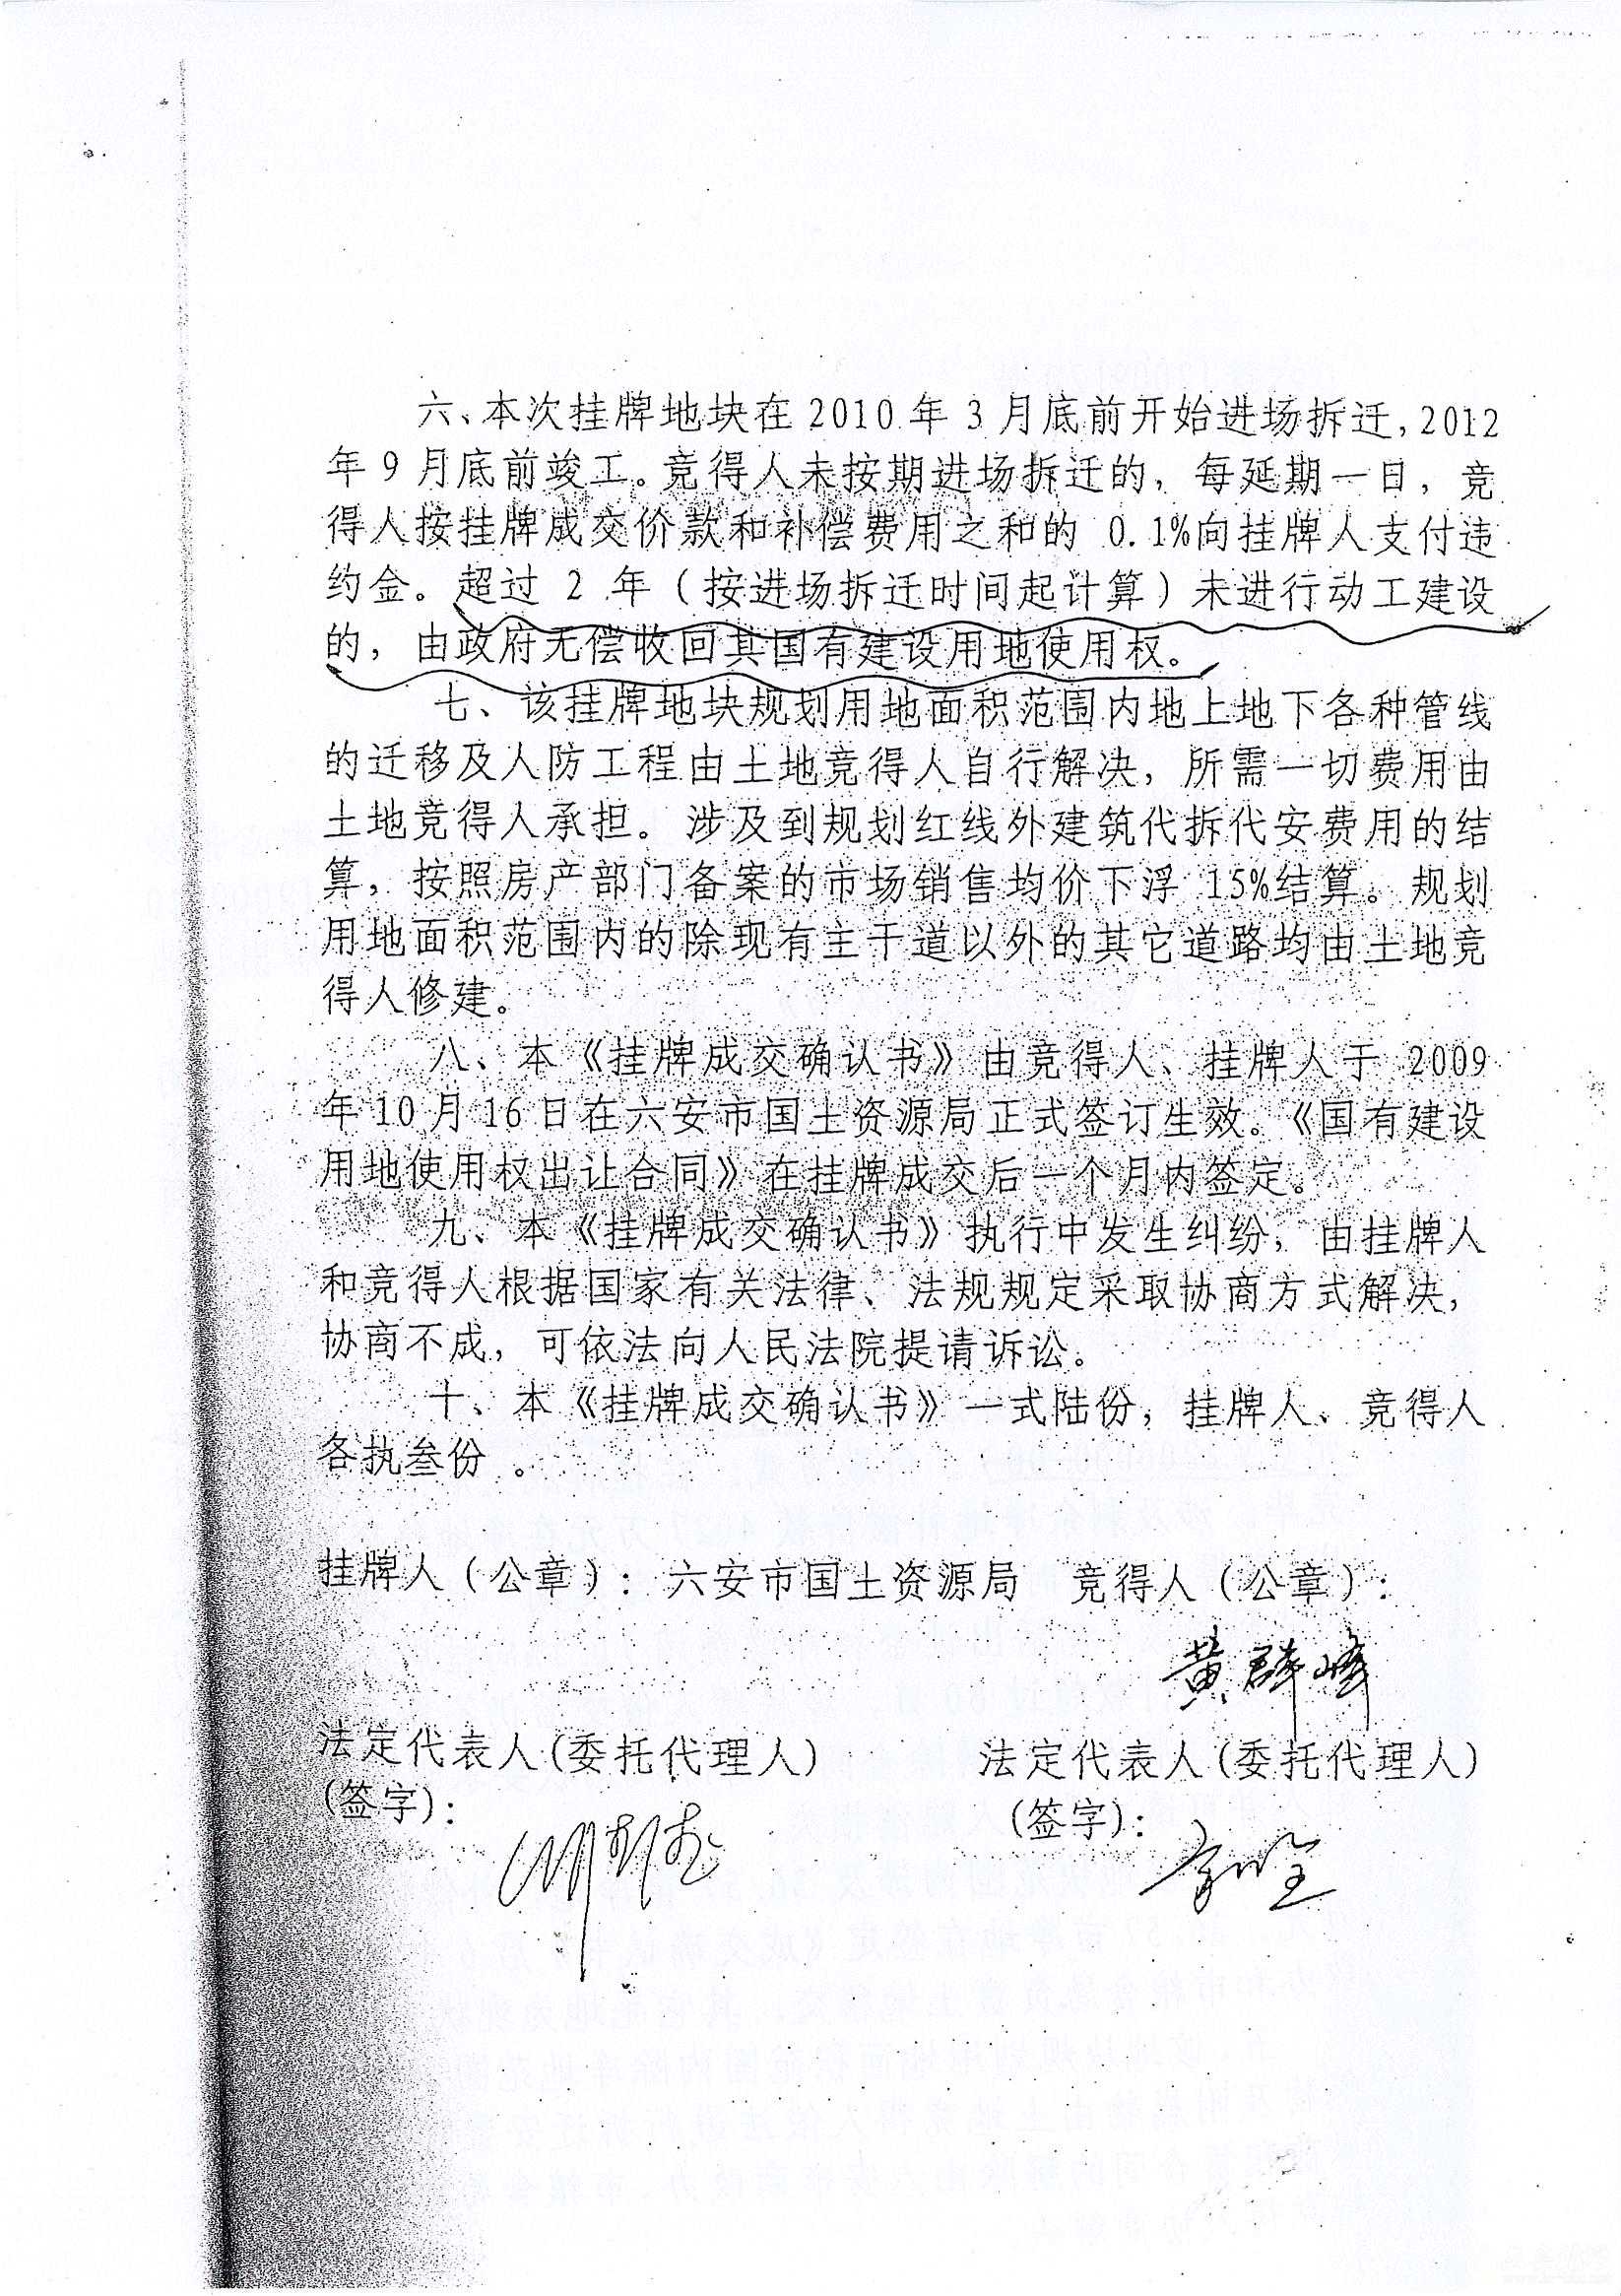 六、本次挂牌地块在 2010 年 3 月底前开始进场拆迁,2012
年 9 月底前竣工。竞得人未按期进场拆迁的，每延期一日，竞
得人按挂牌成交价款和补偿费用之和的 0.1%向挂牌人支付违
约金。超过 2 年（按进场拆迁时间起计算）未进行动工建设
的，由政府无偿收回其国有建设用地使用权。
七、该挂牌地块规划用地面积范围内地上地下各种管线
的迁移及人防工程由土地竞得人自行解决，所需一切费用由
土地竞得人承担。涉及到规划红线外建筑代拆代安费用的结
算，按照房产部门备案的市场销售均价下浮 15%结算。规划
用地面积范围内的除现有主干道以外的其它道路均由土地竞
得人修建。
八、本《挂牌成交确认书》由竞得人、挂牌人于 2009
年 10 月 16 日在六安市国土资源局正式签订生效。《国有建设
用地使用权出让合同》在挂牌成交后一个月内签定。
九、本《挂牌成交确认书》执行中发生纠纷，由挂牌人
和竞得人根据国家有关法律、法规规定采取协商方式解决，
协商不成，可依法向人民法院提请诉讼。
十、本《挂牌成交确认书》一式陆份，挂牌人、竞得人
各执叁份 。
挂牌人（公章）：六安市国土资源局 竞得人（公章）：
黄群峰
法定代表人(委托代理人) 法定代表人(委托代理人)
(签字)： (签字)：